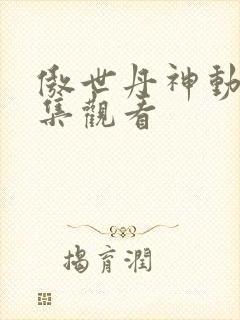 傲世丹神動
集觀看
揭育潤